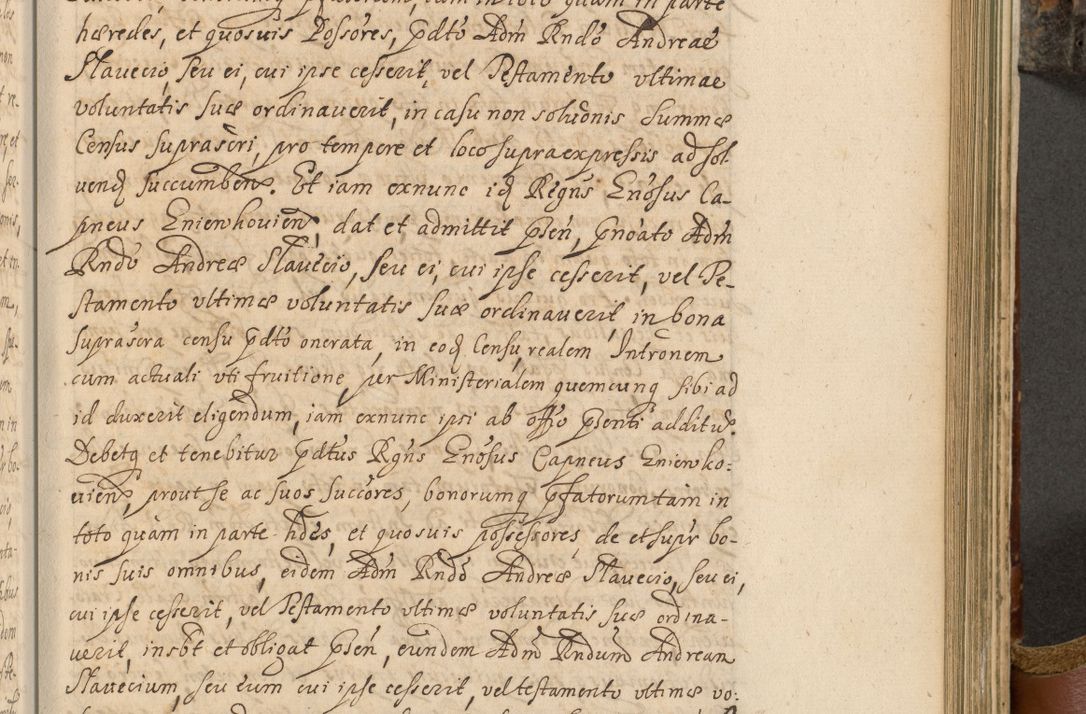 hæredes, et quosuis Possores, pdto Adm Rndo Andreae
Slauecio, seu ei, cui ipse cesserit, vel Testamento vltimae
voluntatis suæ ordinauerit, in casu non solutionis Summæ
Census suprascri, pro tempore et loco supra expressis ad sol
vend succumben. Et iam exnunc id Regns Enosus Ca-
pneus Gniewkouien, dat et admittit psen, pnoato Adm
Rndo Andreæ Slauecio, seu ei, cui ipse cesserit, vel Te-
stamento vltimæ voluntatis suæ ordinauerit, in bona
suprascra censu pdto onerata, in eod Censu, realem Intronem
cum actuali vti fruitione, per Ministerialem quemcunq sibi ad
id duxerit eligendum, iam exnunc ipsi ab offo psenti additu.
Debetq et tenebitur pdtus Rgns Enosus Capneus Gniewko:
uien, prout se ac suos succores, bonorumq pfatorum tam in
toto quam in parte hdes, et quosuis possessores, de et supr bo-
nis suis omnibus, eidem Adm Rndo Andreæ Slauecio, seu ei,
cui ipse cesserit, vel Testamento vltimæ voluntatis suæ ordina-
uerit, insbt et obligat psen, eundem Adm Rndum Andream
Slauecium, seu eum cui ipse cesserit, vel testamento vltimæ vo: